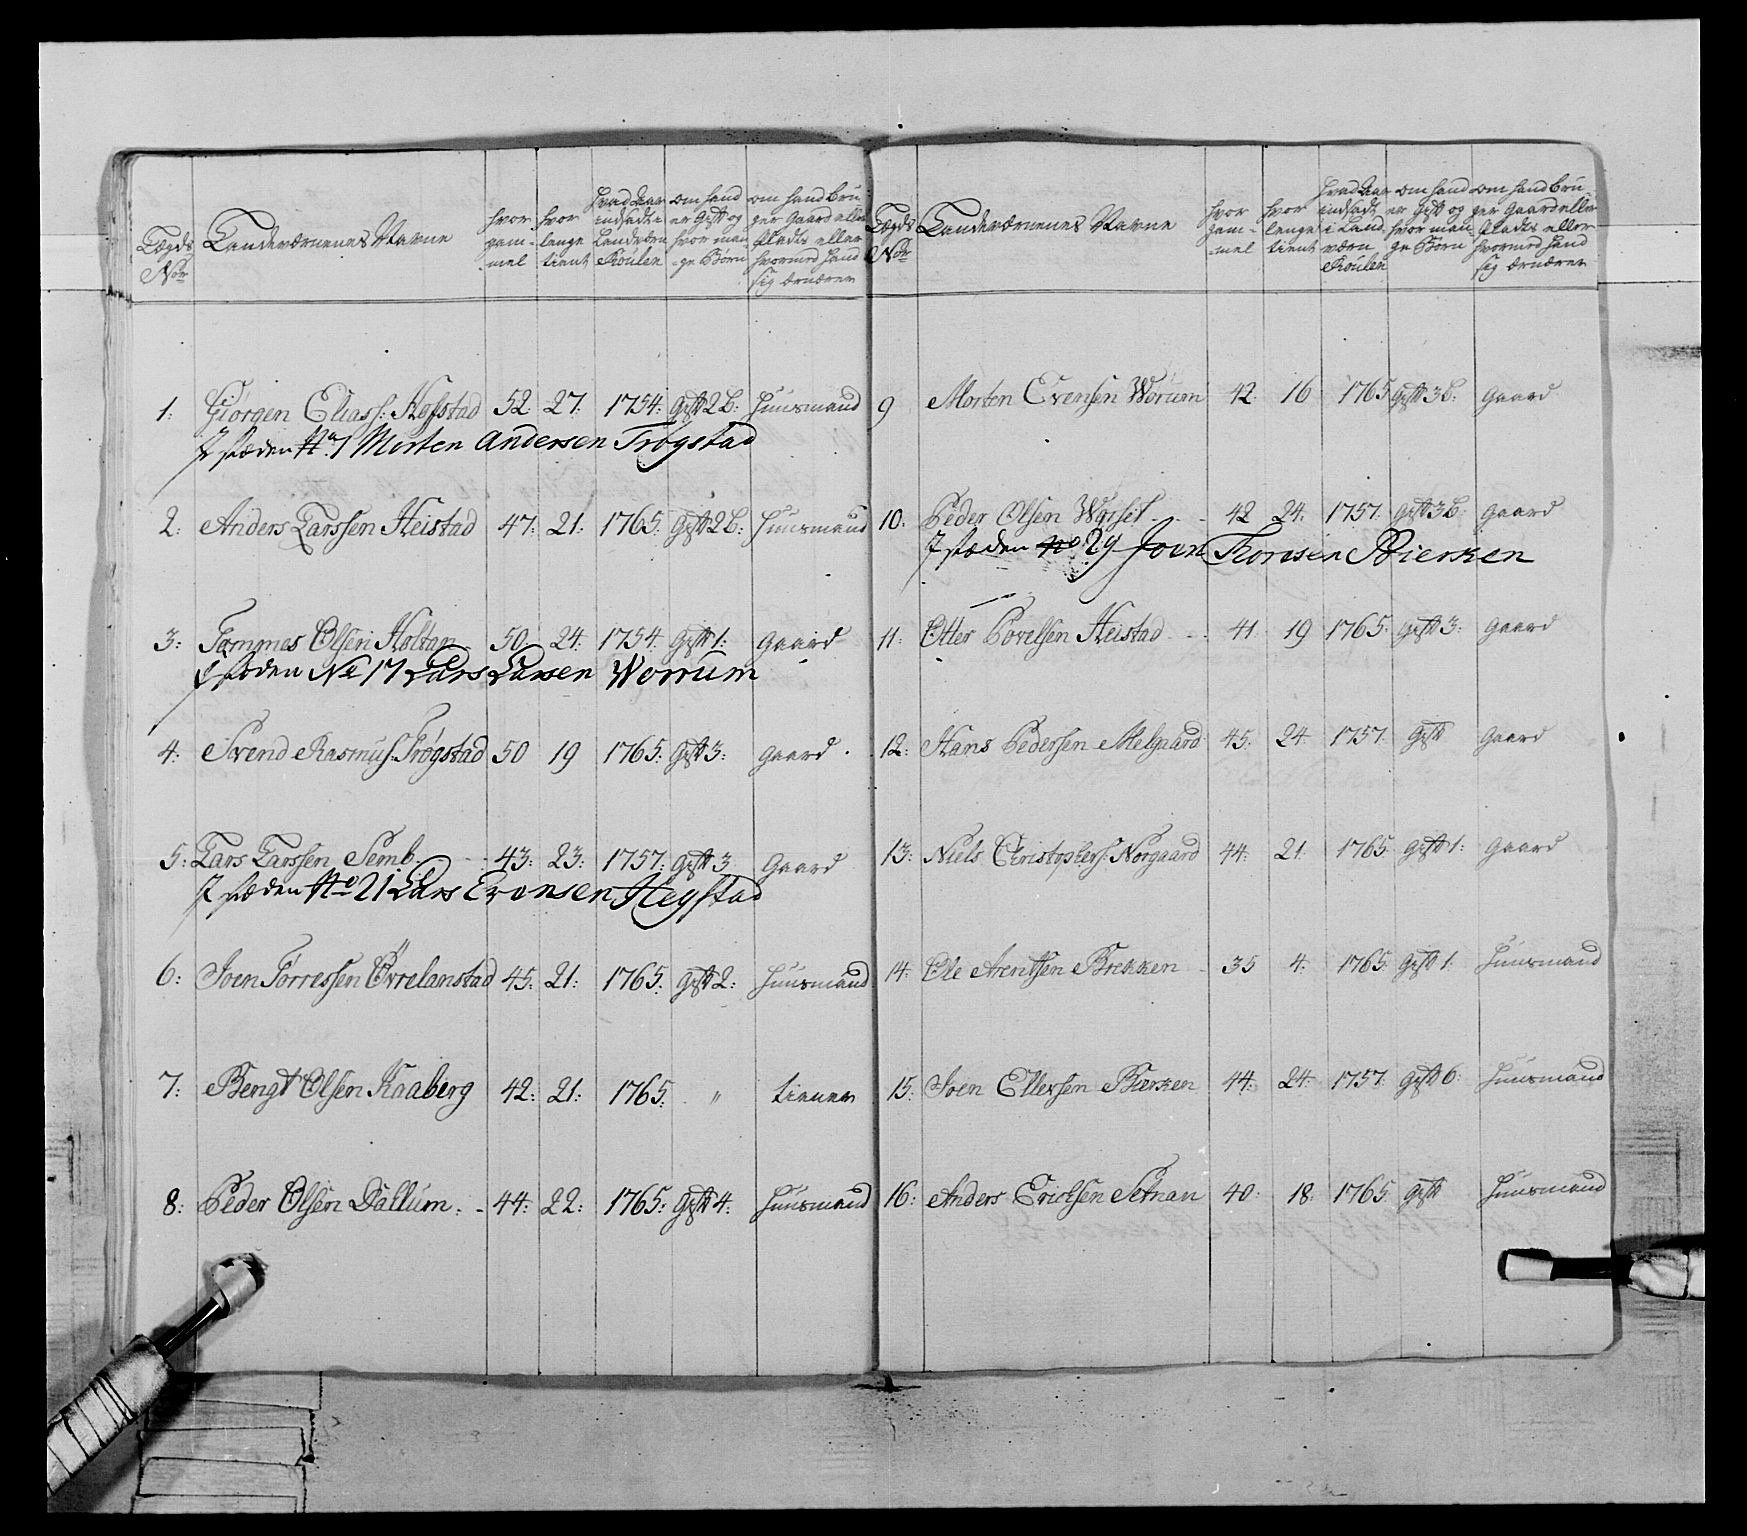 Lægds Nor
Landeværnenes Navne
hvor gam-mel
hvor lenge tient
hvad Aar indsadt i Landværn Roulen
om hand er Gift og hvor man-ge Børn
om hand bru-ger Gaard eller Pladts eller hvormed hand sig ærnærer
1: Giörgen Eliass: Hofstad 52 27: 1754: Gift 2 B: Huusmand
I stæden No 1 Morten Andersen Trögstad
2: Anders Larssen Heistad 47: 21: 1765: Gift 2 B: Huusmand
3: Tommes Olsen Holtan 50 24: 1754: Gift 1: Gaard
I stæden No 17 Lars Larsen Worrum
4: Svend Rasmus: Trögstad 50 19 1765: Gift 3: Gaard
5: Lars Larssen Semb 43: 23: 1757: Gift 3 Gaard
I stæden No 21 Lars Evensen Hegstad
6: Joen Torressen Övrelanstad 45: 21: 1765: Gift 2: Huusmand
7: Bengt Olsen Kaaberg 42: 21: 1765: " tiener
8: Peder Olsen Dallum 44: 22: 1765: Gift 4: Huusmand
Lægds Nor
Landeværnenes Navne
hvor gam-mel
hvor lenge tient
hvad Aar indsadt i Land værn Roulen
om hand er Gift og hvor man-ge Børn
om hand bru-ger Gaard eller Pladts eller hvormed hand sig ærnærer
9 Morten Evensen Worum 42 16 1765 Gift 3 B: Gaard
10: Peder Olsen 42 24 1757: Gift 3 B: Gaard
I stæden No 29 Joen Thoresen
11: Otter Povelsen Heistad 41 19 1765: Gift 3: Gaard
12: Hans Pedersen Melgaard 45: 24 1757: Gift Gaard
13: Niels Christophers: Norgaard 44: 21 1765 Gift 1: Gaard
14: Ole Arentsen Brekken 35 4: 1765 Gift 1: Huusmand
15: Joen Ellevsen 44: 24: 1757 Gift 6: Huusmand
16: Anders Ericksen Setnan 40: 18: 1765 Gift Huusmand